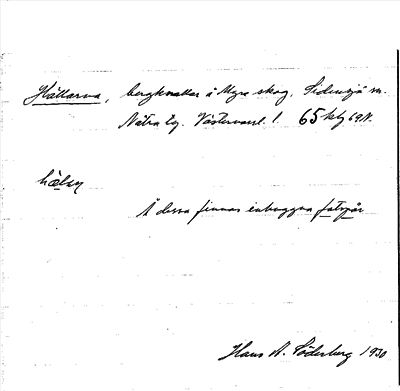 Hällarna, bergknallar å Myre skog, Sidensjö sn.
Nätra tg. Västernorrl. l. 65 kbg 69N.
hälsn
Å dessa finnas inhuggna fotspår
Hans A. Söderberg 1930